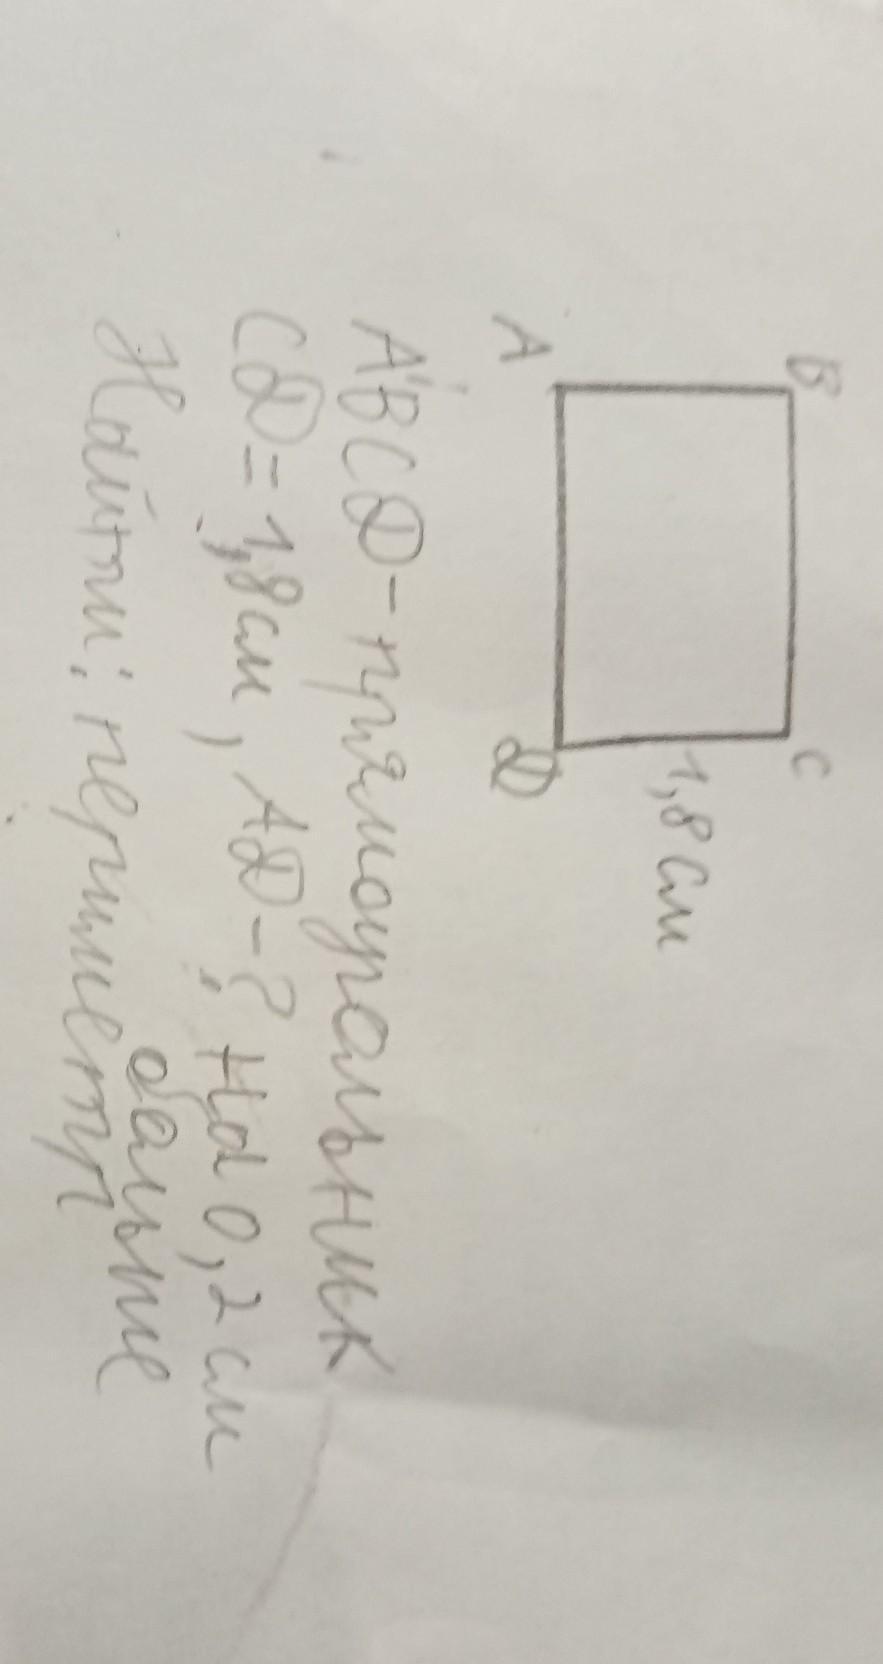 B
C
1,8 см
A
D
ABCD - прямоугальник
CD = 1,8 см, AD - ? На 0,2 см
больше
Найти: периметр